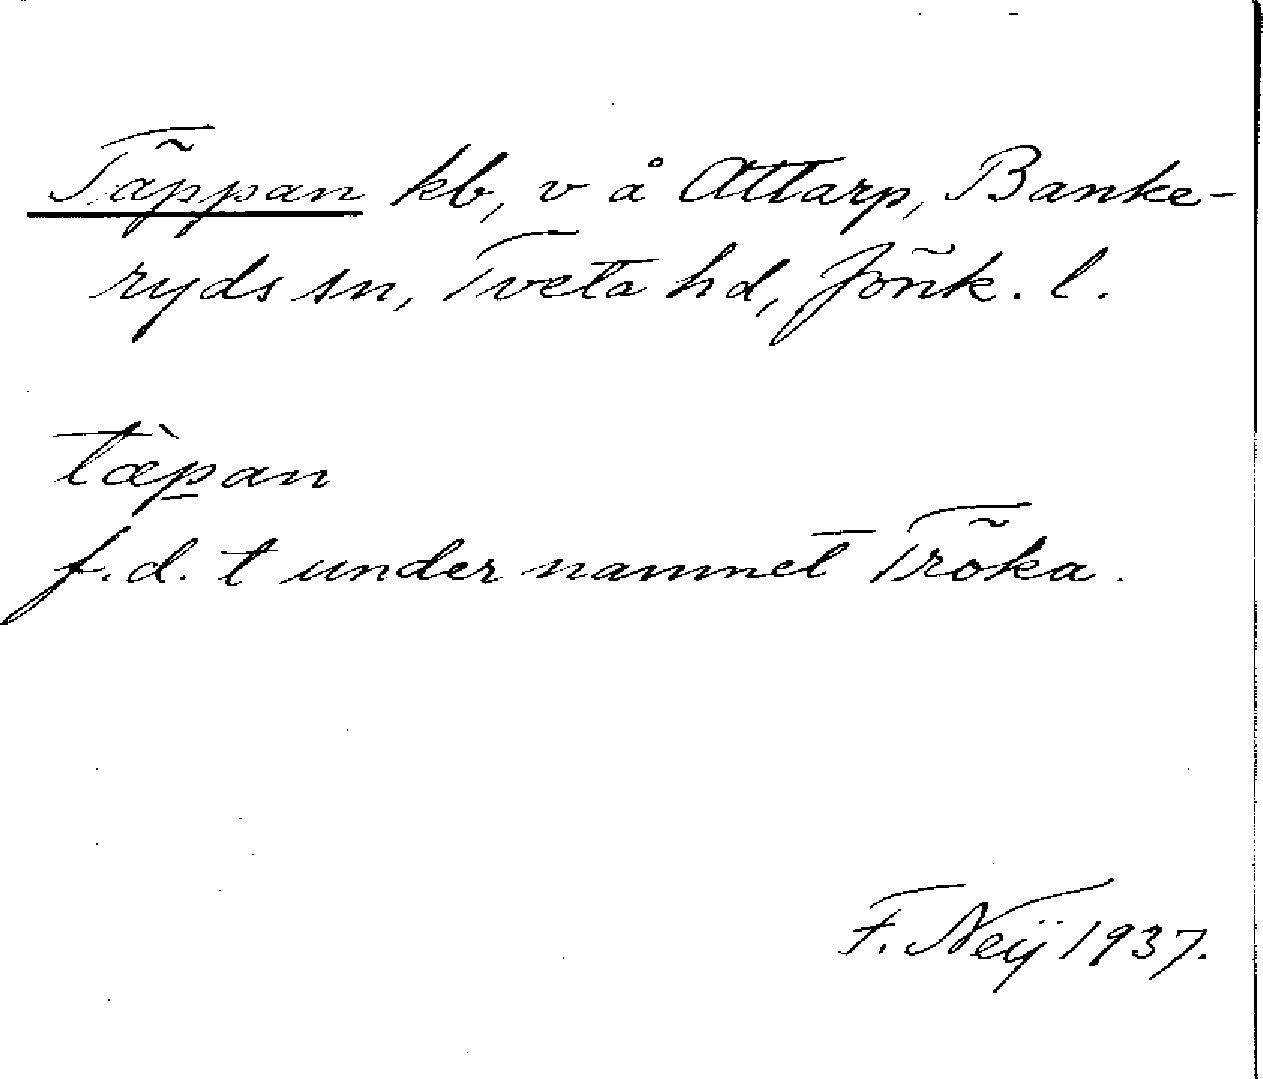 Täppan kb, v å Attarp, Banke-
ryds sn, Tveta hd, Jönk. l.
tæ̀p̲an
f.d. t under namnet Tröka.
F. Neij 1937.